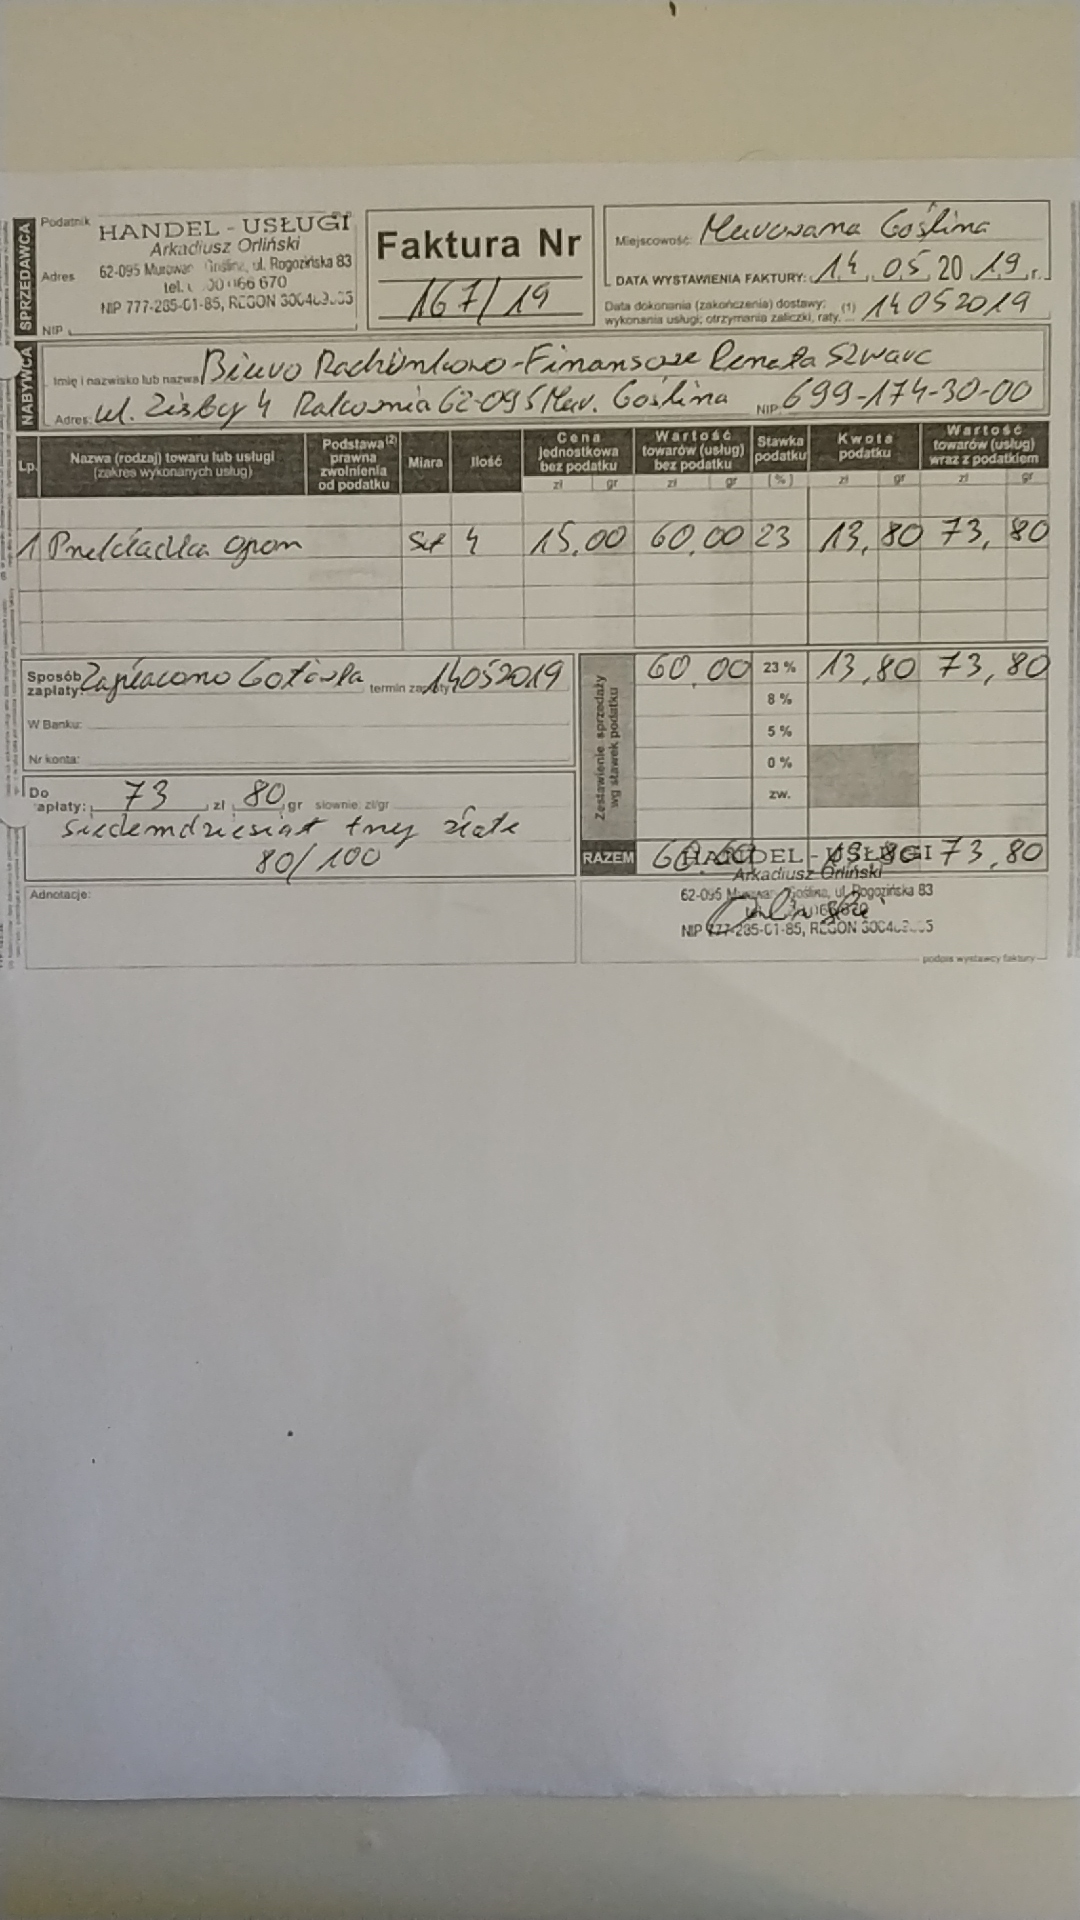 SPRZEDAWCA
Podatnik
HANDEL - USŁUGI
Arkadiusz Orliński
Adres
62-095 Murowan Goślina, ul. Rogozińska 83
tel. 066 670
NIP 777-285-01-85, REGON
NIP
Faktura Nr
167/19
Miejscowość: Murowana Goślina
DATA WYSTAWIENIA FAKTURY: 14.05.2019 r.
Data dokonania (zakończenia) dostawy; (1) 14052019
wykonania usługi; otrzymania zaliczki, raty.
NABYWCA
Imię i nazwisko lub nazwa Biuro Rachunkowo-Finansowe Renata Szwarc
Adres: ul. 4 Rakownia 62-095 Mur. Goślina NIP 699-174-30-00
Lp.
Nazwa (rodzaj) towaru lub usługi
(zakres wykonanych usług)
Podstawa (2)
prawna
zwolnienia
od podatku
Miara
Ilość
Cena
jednostkowa
bez podatku
Wartość
towarów (usług)
bez podatku
Stawka
podatku
Kwota
podatku
Wartość
towarów (usług)
wraz z podatkiem
zł gr zł gr (%) zł gr zł gr
1 Przekładka opon szt 4 15,00 60,00 23 13,80 73,80
Sposób
zapłaty: Zapłacono Gotówka termin zapłaty 14052019
W Banku:
Nr konta:
Do
zapłaty: 73 zł 80 gr słownie: zł/gr
siedemdziesiat trzy złote
80/100
Adnotacje:
Zestawienie sprzedaży
wg stawek podatku
60,00 23 % 13,80 73,80
8 %
5 %
0 %
zw.
RAZEM 60,00 13,80 73,80
HANDEL - USŁUGI
Arkadiusz Orliński
62-095 Murowan Goślina, ul. Rogozińska 83
NIP 777-285-01-85, REGON
podpis wystawcy faktury